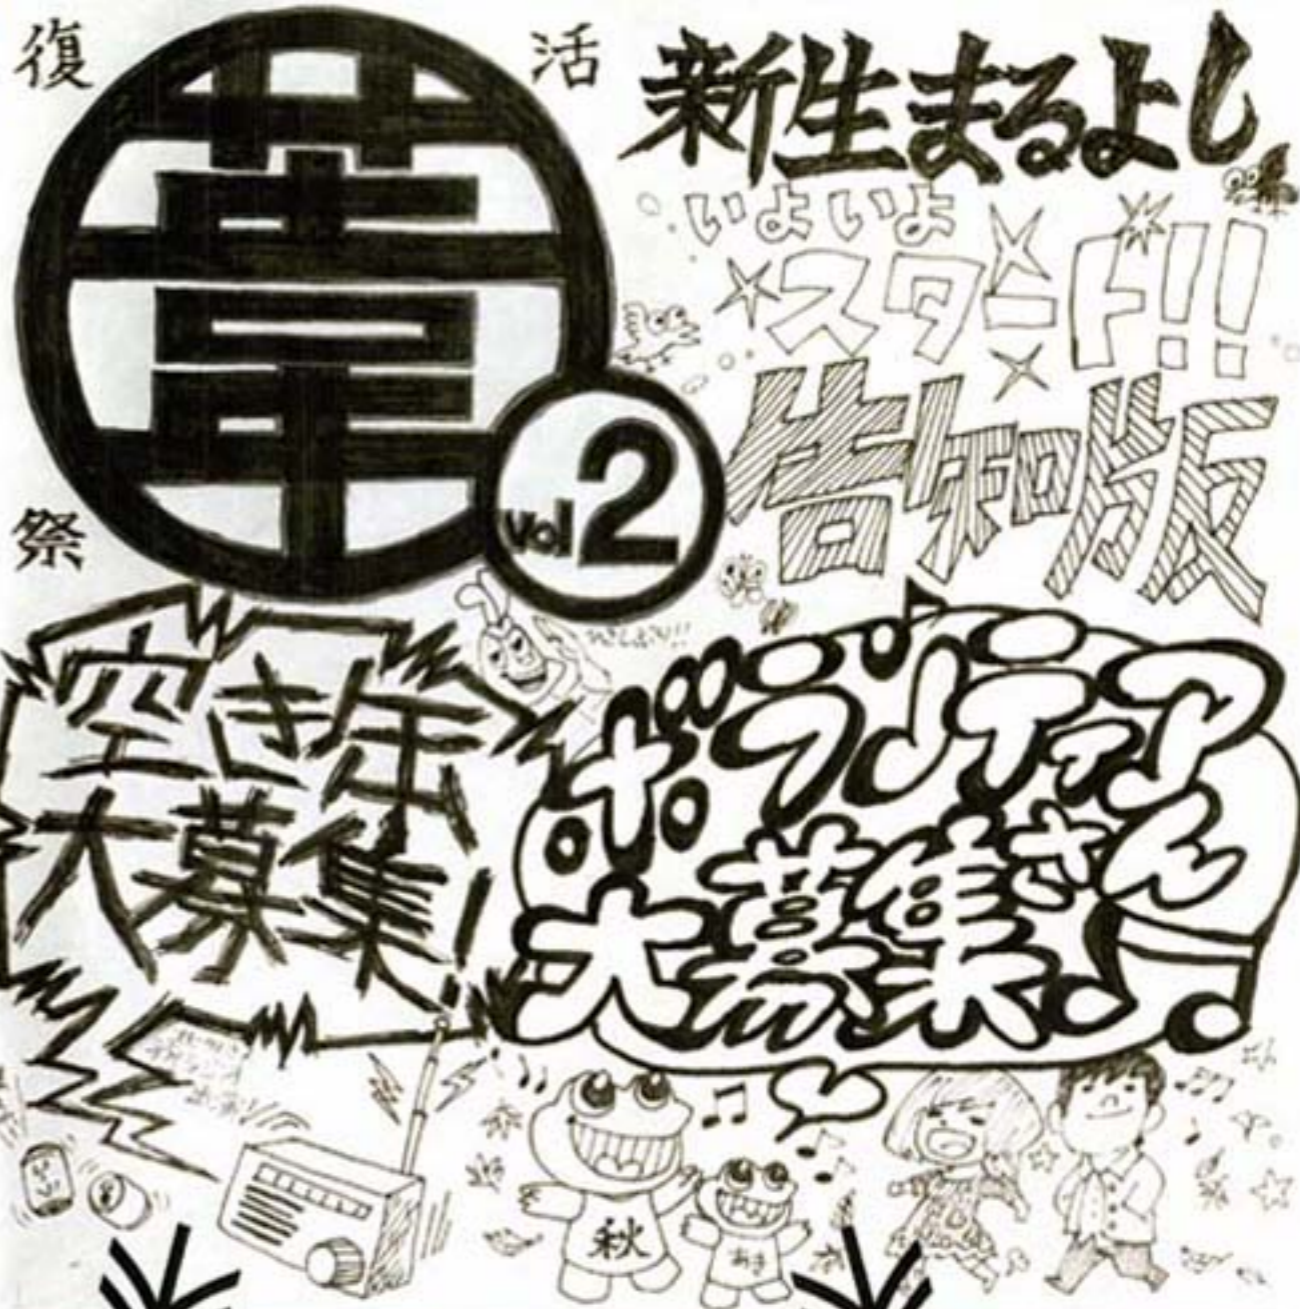 復活
葦
祭
vol 2
新生まるよし
いよいよ
スタート!!
告知版
空き缶
大募集!
ボランティアさん
大募集
秋
あき